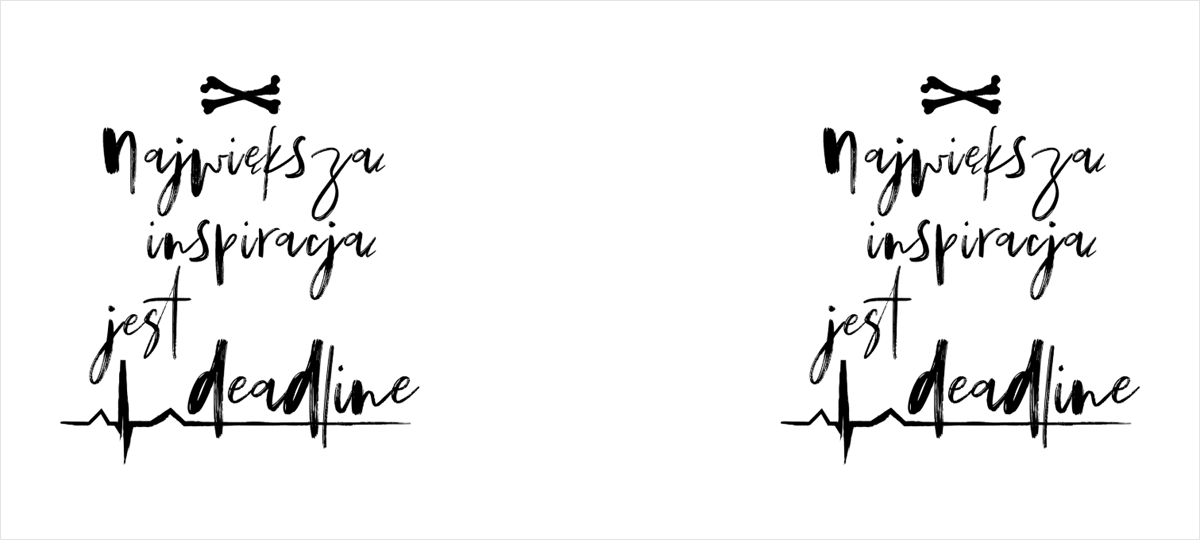 Największa
inspiracja
jest
deadline
Największa
inspiracja
jest
deadline